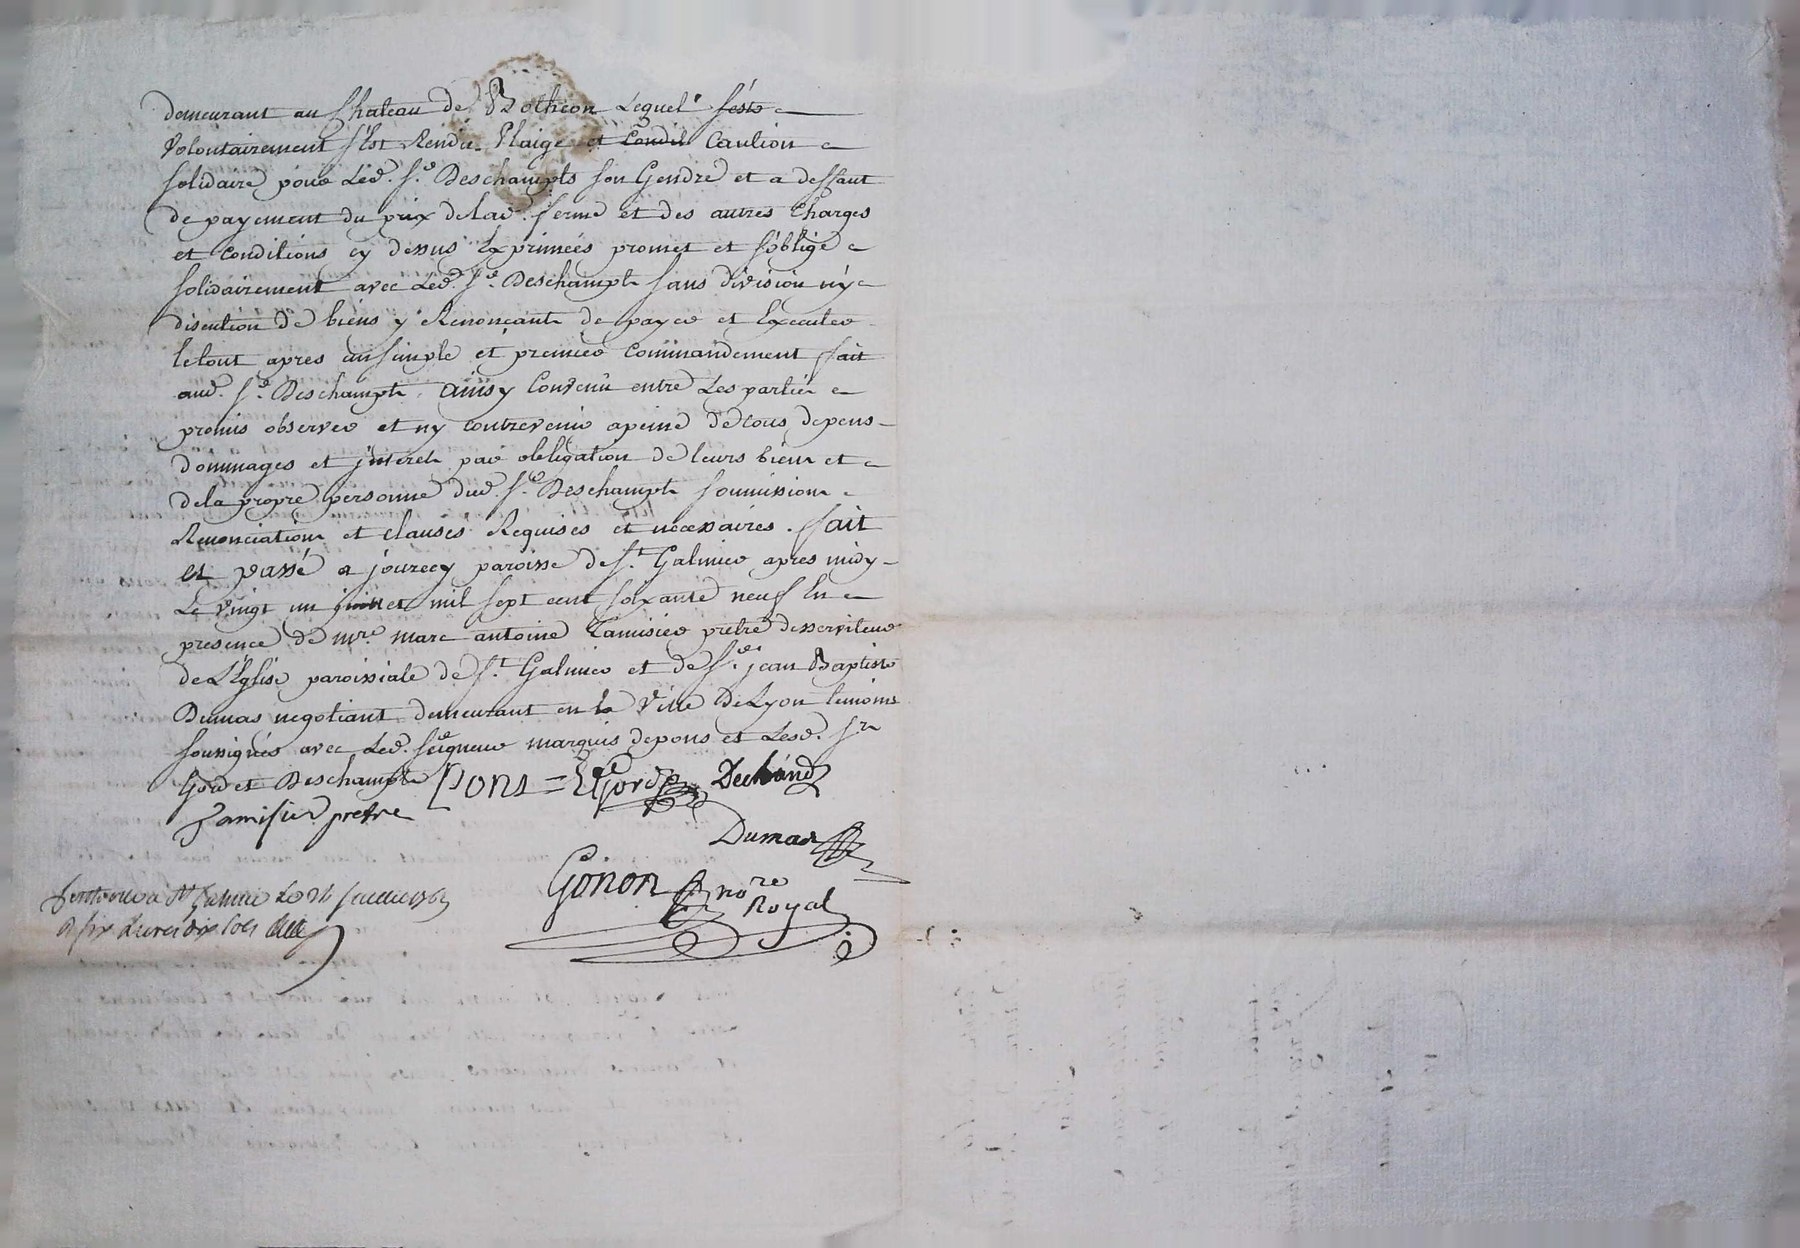 demeurant au Chateau de Botheon Lequel s'este
Volontairement s'Est Rendu Plaige et Condit Caution
solidaire pour Led. Sr. Deschampts son Gendre et a deffaut
de payement du prix delad. ferme et des autres Charges
et conditions cy dessus Exprimées promet et s'oblige
solidairement avec Led. Sr. Deschampts sans division ny
discution de biens y Renonçants de payer et Executer
letout apres un simple et premier commandement fait
aud. Sr. Deschampts, ainsy Convenû entre Les parties
promis observer et ny contrevenir apeine de tous depens
dommages et jnterets par obligation de leurs biens et
dela propre personne dud. Sr. Deschampts soumissions
Renonciations et clauses Requises et necessaires. fait
et passé a jourcey paroisse de St. Galmier apres midy
Le vingt un juillet mil sept cent soixante neuf En
presence de mre. marc antoine Tamisier prêtre desserviteur
de L'Eglise paroissiale de St. Galmier et de Sr. jean Baptiste
Dumas negotiant demeurant en la Ville De Lyon temoins
soussignés avec Led. seigneur marquis depons et Lesd. Srs
Gord et Deschampts Pons = Gord Dechand
Tamisier prêtre
Dumas
Gonon nore
Royal
a St Galmier Le
a six Livres dix sols